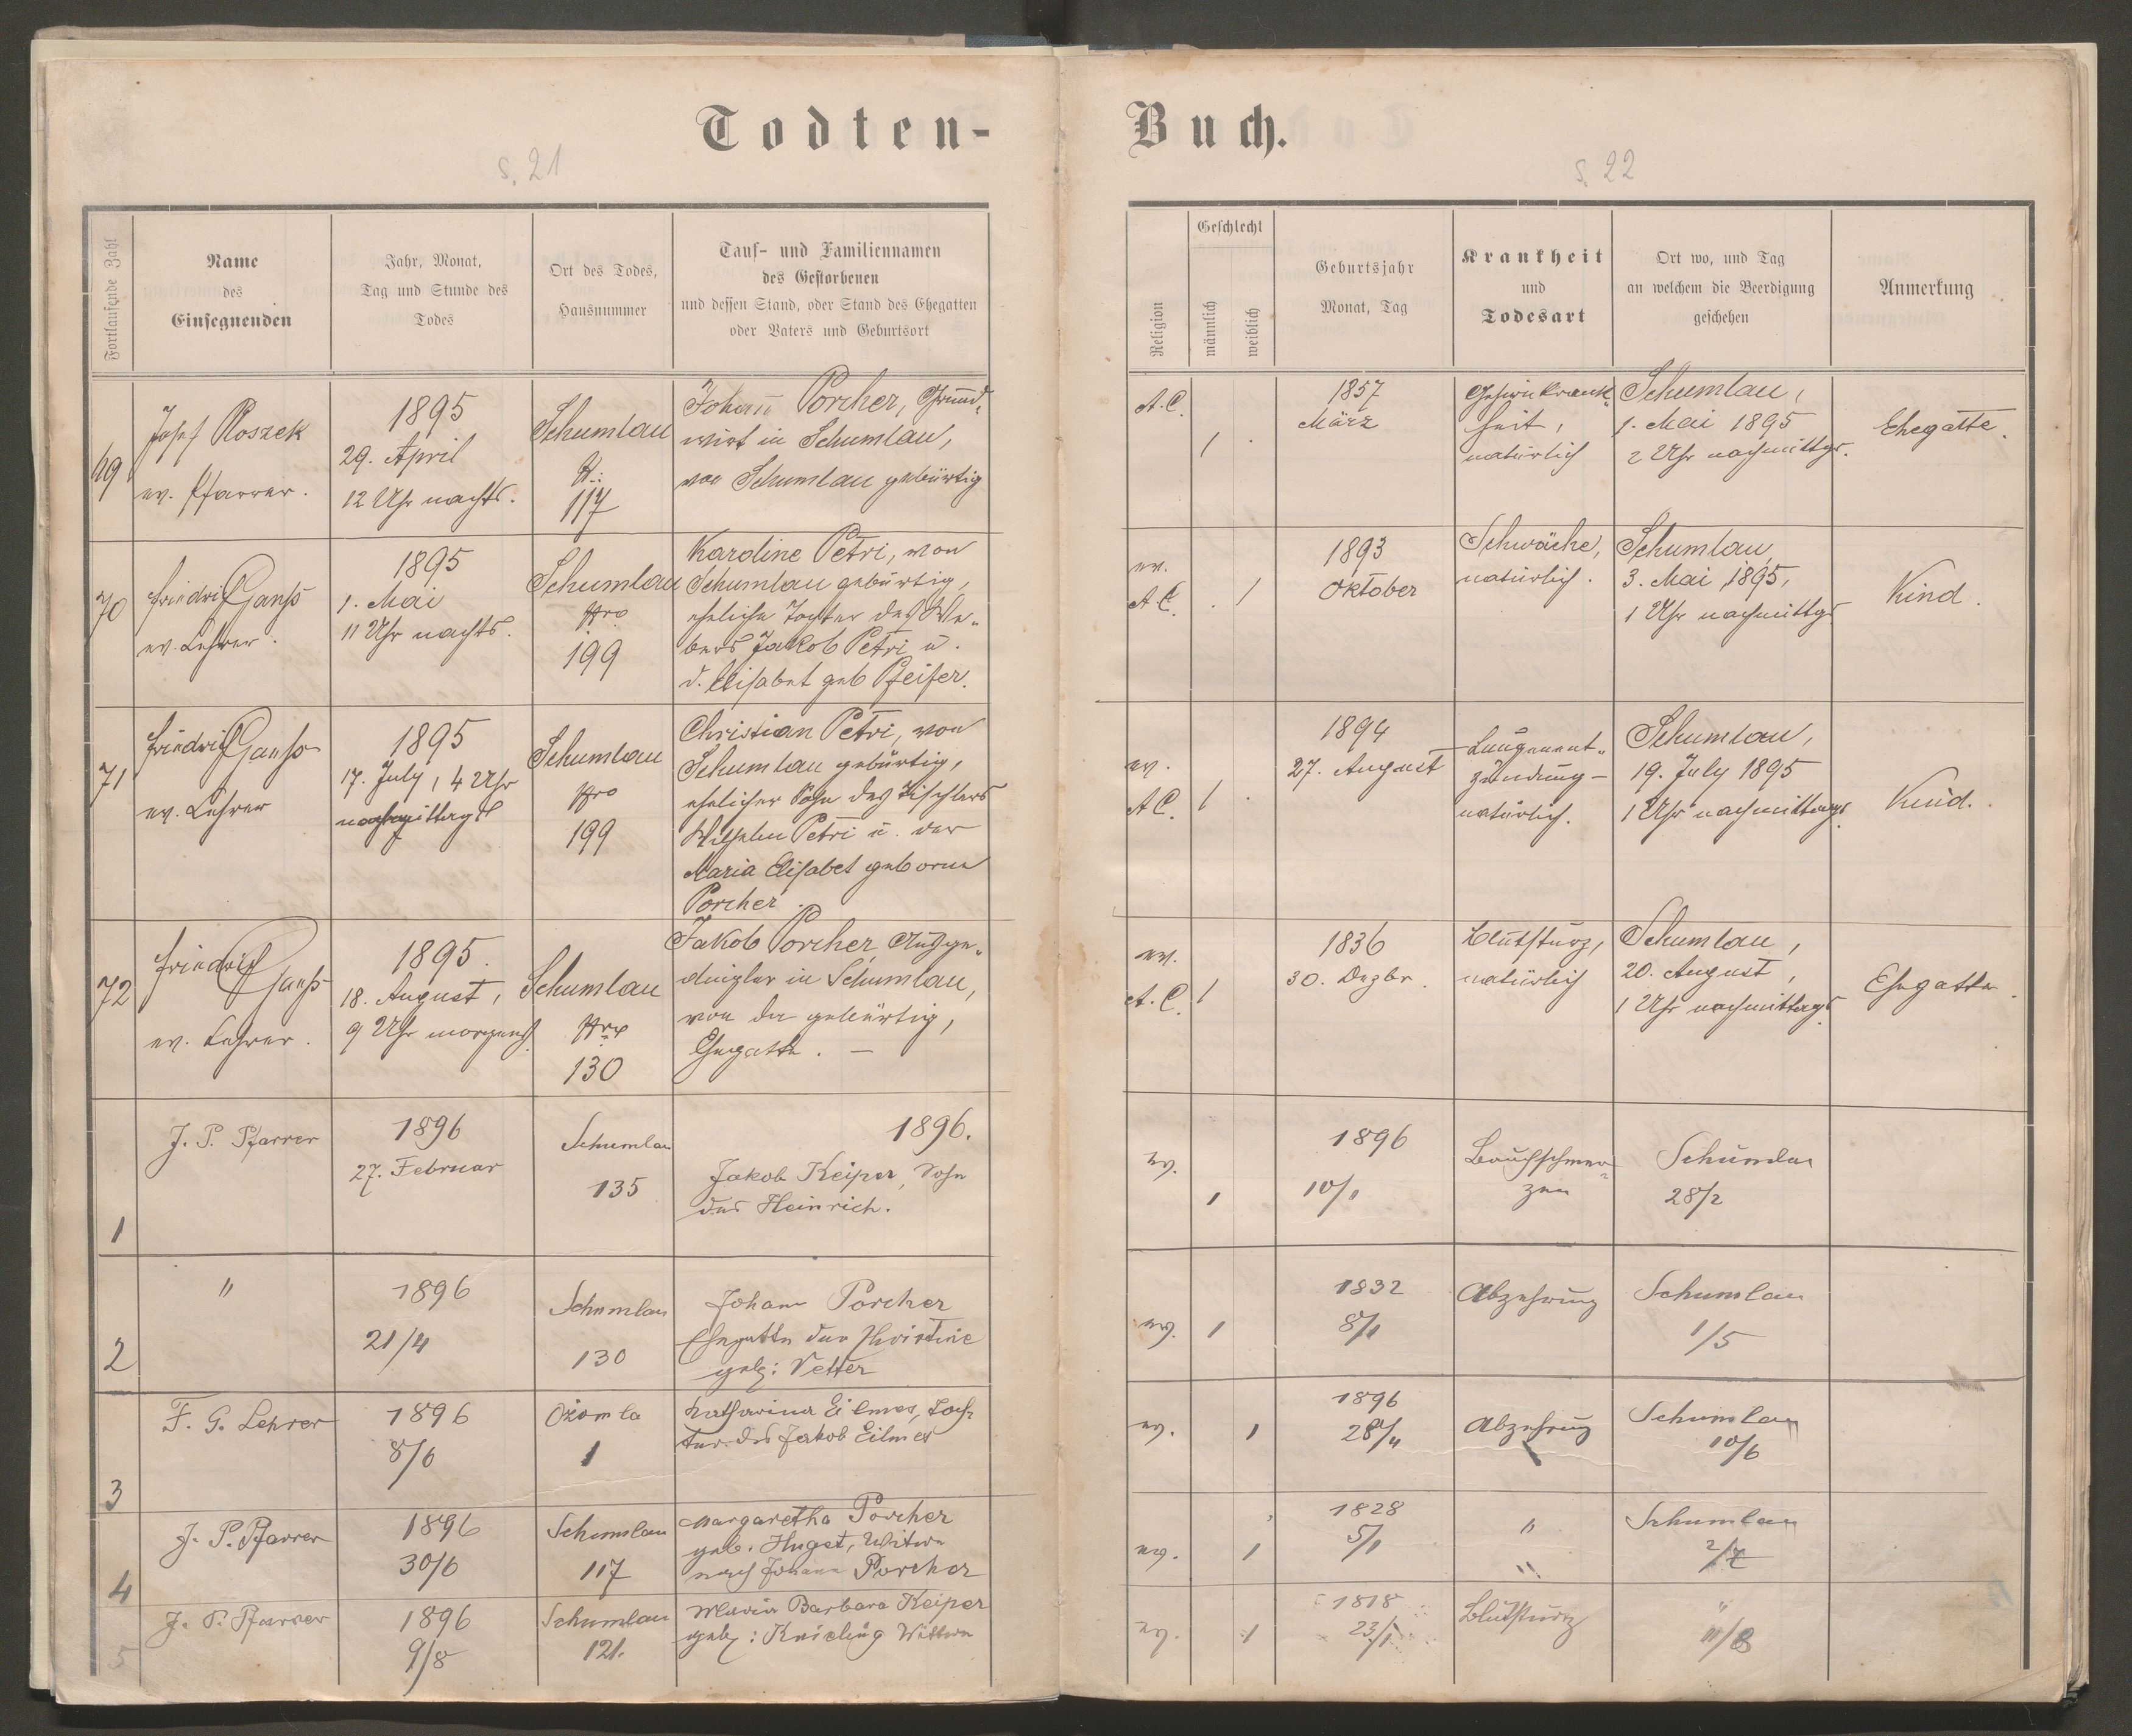 Todten-
s. 21
Fortlaufende Zahl
Name
des
Einsegnenden
Jahr, Monat,
Tag und Stunde des
Todes
Ort des Todes,
Hausnummer
Tauf- und Familiennamen
des Gestorbenen
und dessen Stand, oder Stand des Ehegatten
oder Vaters und Geburtsort
69
Josef Roszek
ev. Pfarrer.
1895
29. April
12 Uhr nachts.
Schumlau
117
Johann Porcher, Grund-
wirt in Schumlau,
von Schumlau gebürtig
70
Friedrich Ganß
ev. Lehrer.
1895
1. Mai
11 Uhr nachts.
Schumlau
Nro
199
Karoline Petri, von
Schumlau gebürtig,
eheliche Tochter des We-
bers Jakob Petri u.
d. Elisabet geb Pfeifer.
71
Friedrich Ganß
ev. Lehrer
1895
17. July, 4 Uhr
nachmittags
Schumlau
Nro
199
Christian Petri, von
Schumlau gebürtig,
ehelicher Sohn des Tischlers
Wilhelm Petri u. der
Maria Elisabet geborne
Porcher.
72
Friedrich Ganß
ev. Lehrer.
1895.
18. August,
9 Uhr morgens.
Schumlau
Nro
130
Jakob Porcher, Ausge-
dingler in Schumlau,
von da gebürtig,
Ehegatte. —
1
J. P. Pfarrer
1896
27. Februar
Schumlau
135
1896.
Jakob Keiper, Sohn
des Heinrich.
2
"
1896
21/4
Schumlau
130
Johann Porcher
Ehegatte der Christine
geb: Vetter
3
F. G. Lehrer
1896
8/6
Ożomla
1
Katharina Eilmes, Toch-
ter des Jakob Eilmes
4
J. P. Pfarrer
1896
30/6
Schumlau
117
Margaretha Porcher
geb. Huget, Witwe
nach Johann Porcher
5
J. P. Pfarrer
1896
9/8
Schumlau
121.
Maria Barbara Keiper
geb: Witwe
Buch.
s. 22
Religion
Geschlecht
männlich
weiblich
Geburtsjahr
Monat, Tag
Krankheit
und
Todesart
Ort wo, und Tag
an welchem die Beerdigung
geschehen
Anmerkung
A. C.
1 .
1857
März
Gehirnkrank-
heit,
natürlich
Schumlau,
1. Mai 1895
2 Uhr nachmittgs.
Ehegatte.
ev.
A. C.
. 1
1893
Oktober
Schwäche,
natürlich.
Schumlau,
3. Mai 1895,
1 Uhr nachmittgs
Kind.
ev.
A C.
1 .
1894
27. August
Lungenent-
zündung -
natürlich.
Schumlau,
19. July 1895
1 Uhr nachmittags.
Kind.
ev.
A. C.
1
1836
30. Dezbr.
Blutsturz,
natürlich
Schumlau,
20. August,
1 Uhr nachmittags.
Ehegatte.
ev.
1
1896
10/1
Bauchschmer-
zen
Schumlau
28/2
ev.
1
1832
8/1
Abzehrung
Schumlau
1/5
ev.
1
1896
28/4
Abzehrung
Schumlau
10/6
ev.
1
1828
5/1
"
"
Schumlau
2/7
ev.
1
1818
23/1
Blutsturz
"
11/8